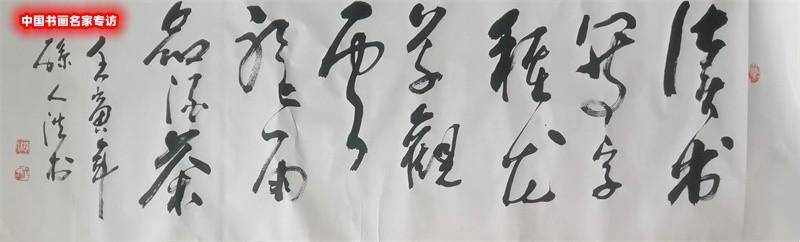 中国书画名家专访
读书
写字
種花
草觀
雲
聽雨
品酒茶
壬寅年
孫人洪书